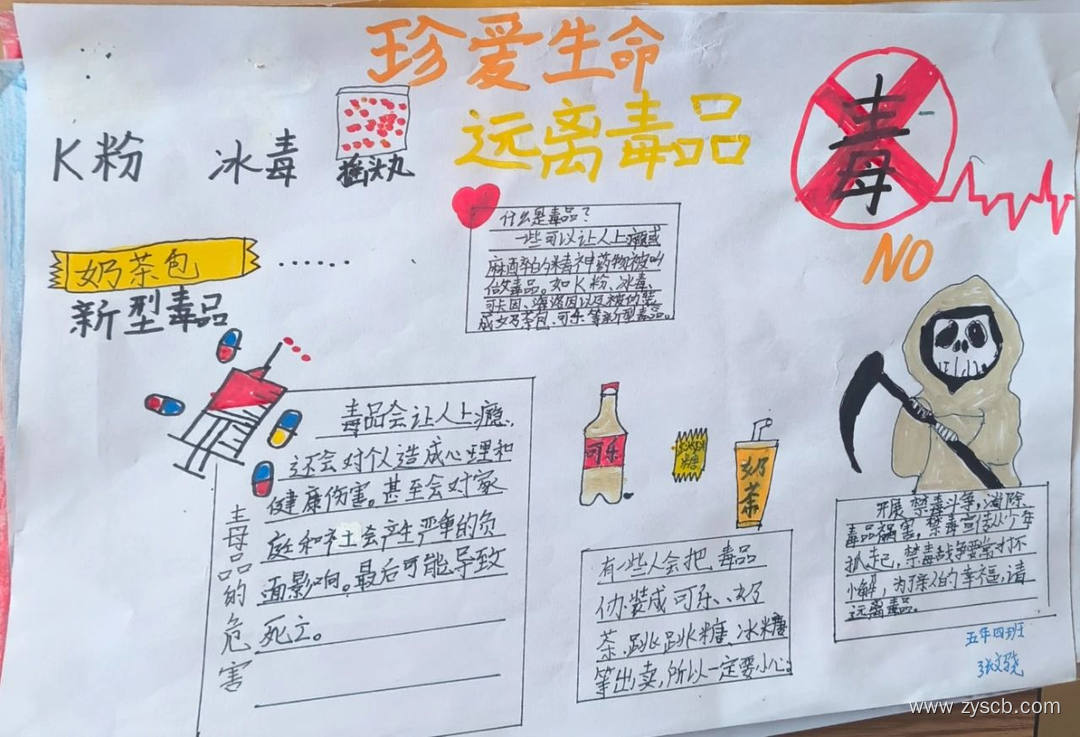 珍爱生命
远离毒品
K粉
冰毒
摇头丸
毒
NO
奶茶包
……
新型毒品
什么是毒品？
一些可以让人上瘾或
麻醉的精神药物被叫
做毒品。如K粉、冰毒、
可卡因、海洛因以及被伪装
成奶茶包、可乐等新型毒品。
毒品的危害
毒品会让人上瘾、
还会对个人造成心理和
健康伤害。甚至会对家
庭和社会产生严重的负
面影响。最后可能导致
死亡。
可乐
跳跳糖
奶茶
有一些人会把毒品
伪装成可乐、奶
茶、跳跳糖、冰糖
等出卖，所以一定要小心。
开展禁毒斗争，消除
毒品祸害，禁毒宣传从少年
抓起，禁毒战争要常打不
懈，为了亲人的幸福，请
远离毒品。
五年四班
www.zyscb.com